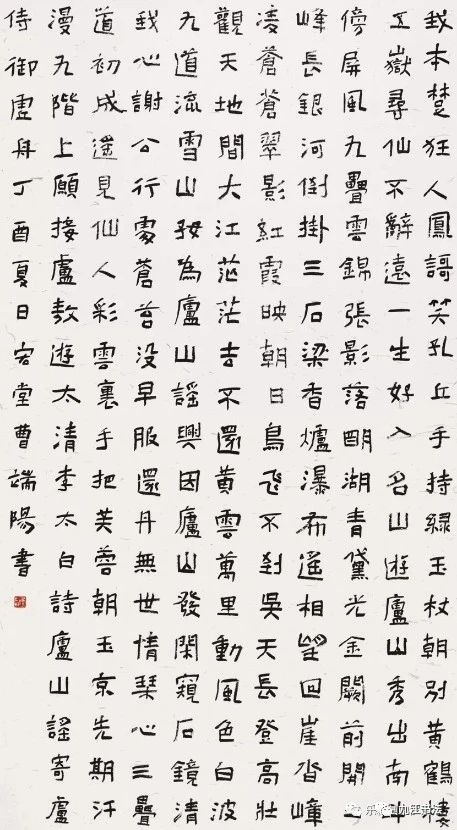 我本楚狂人鳳謌笑孔丘手持綠玉杖朝別黃鶴樓
五嶽尋仙不辭遠一生好入名山遊廬山秀出南
傍屏風九疊雲錦張影落明湖青黛光金闕前開
峰長銀河倒掛三石梁香爐瀑布遙相望回崖沓嶂
凌蒼蒼翠影紅霞映朝日鳥飛不到吳天長登高壯
觀天地間大江茫茫去不還黃雲萬里動風色白波
九道流雪山好為廬山謠興因廬山發閑窺石鏡清
我心謝公行處蒼苔沒早服還丹無世情琴心三疊
道初成遙見仙人彩雲裏手把芙蓉朝玉京先期汗
漫九階上願接盧敖遊太清李太白詩廬山謠寄盧
侍御虛舟丁酉夏日宏堂曹端陽書